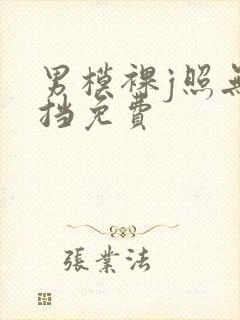 男模裸j照無
挡免費
張業法